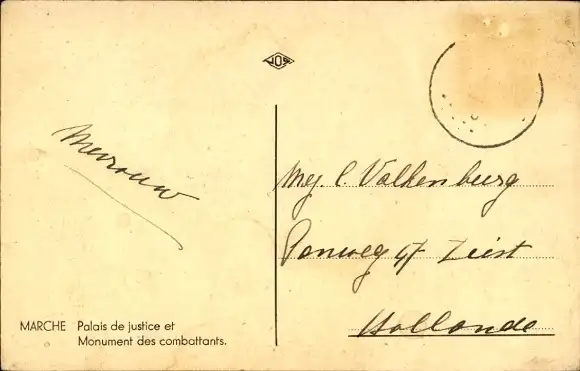 JOS
Mevrouw
Mej. C. Valkenburg
47 Zeist
Hollande
MARCHE Palais de justice et
Monument des combattants.